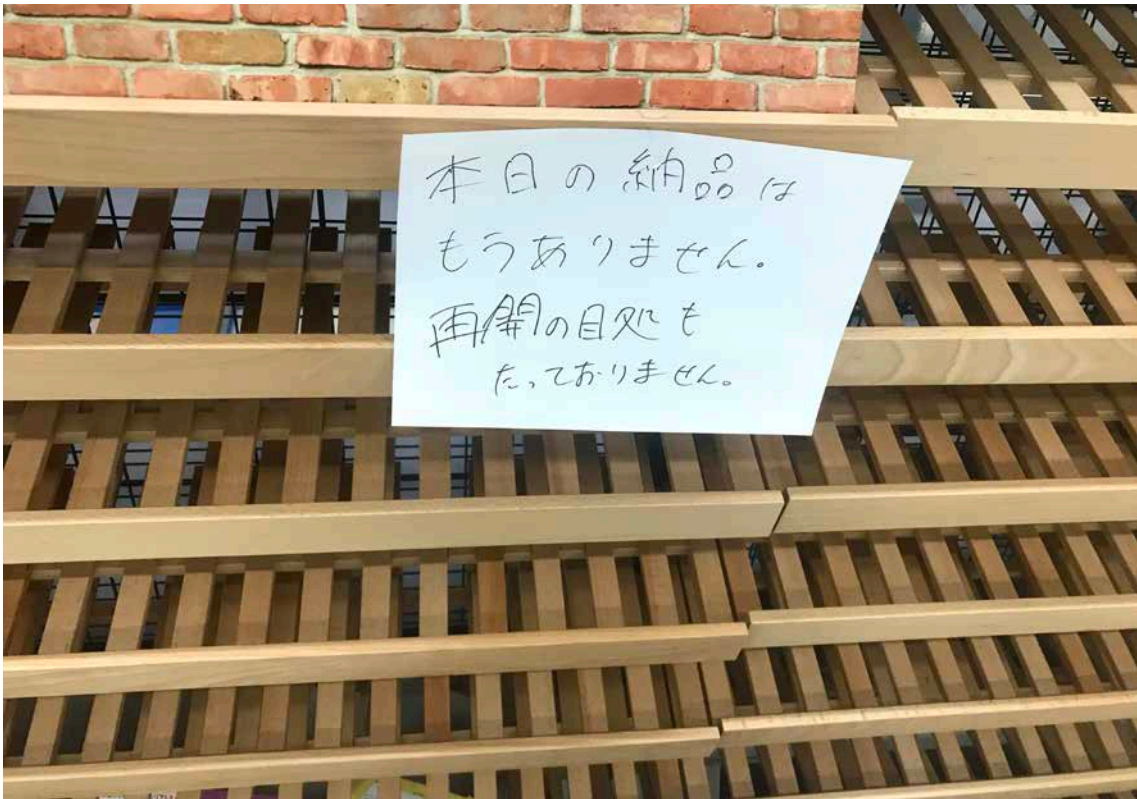 本日の納品は
もうありません。
再開の目処も
たっておりません。